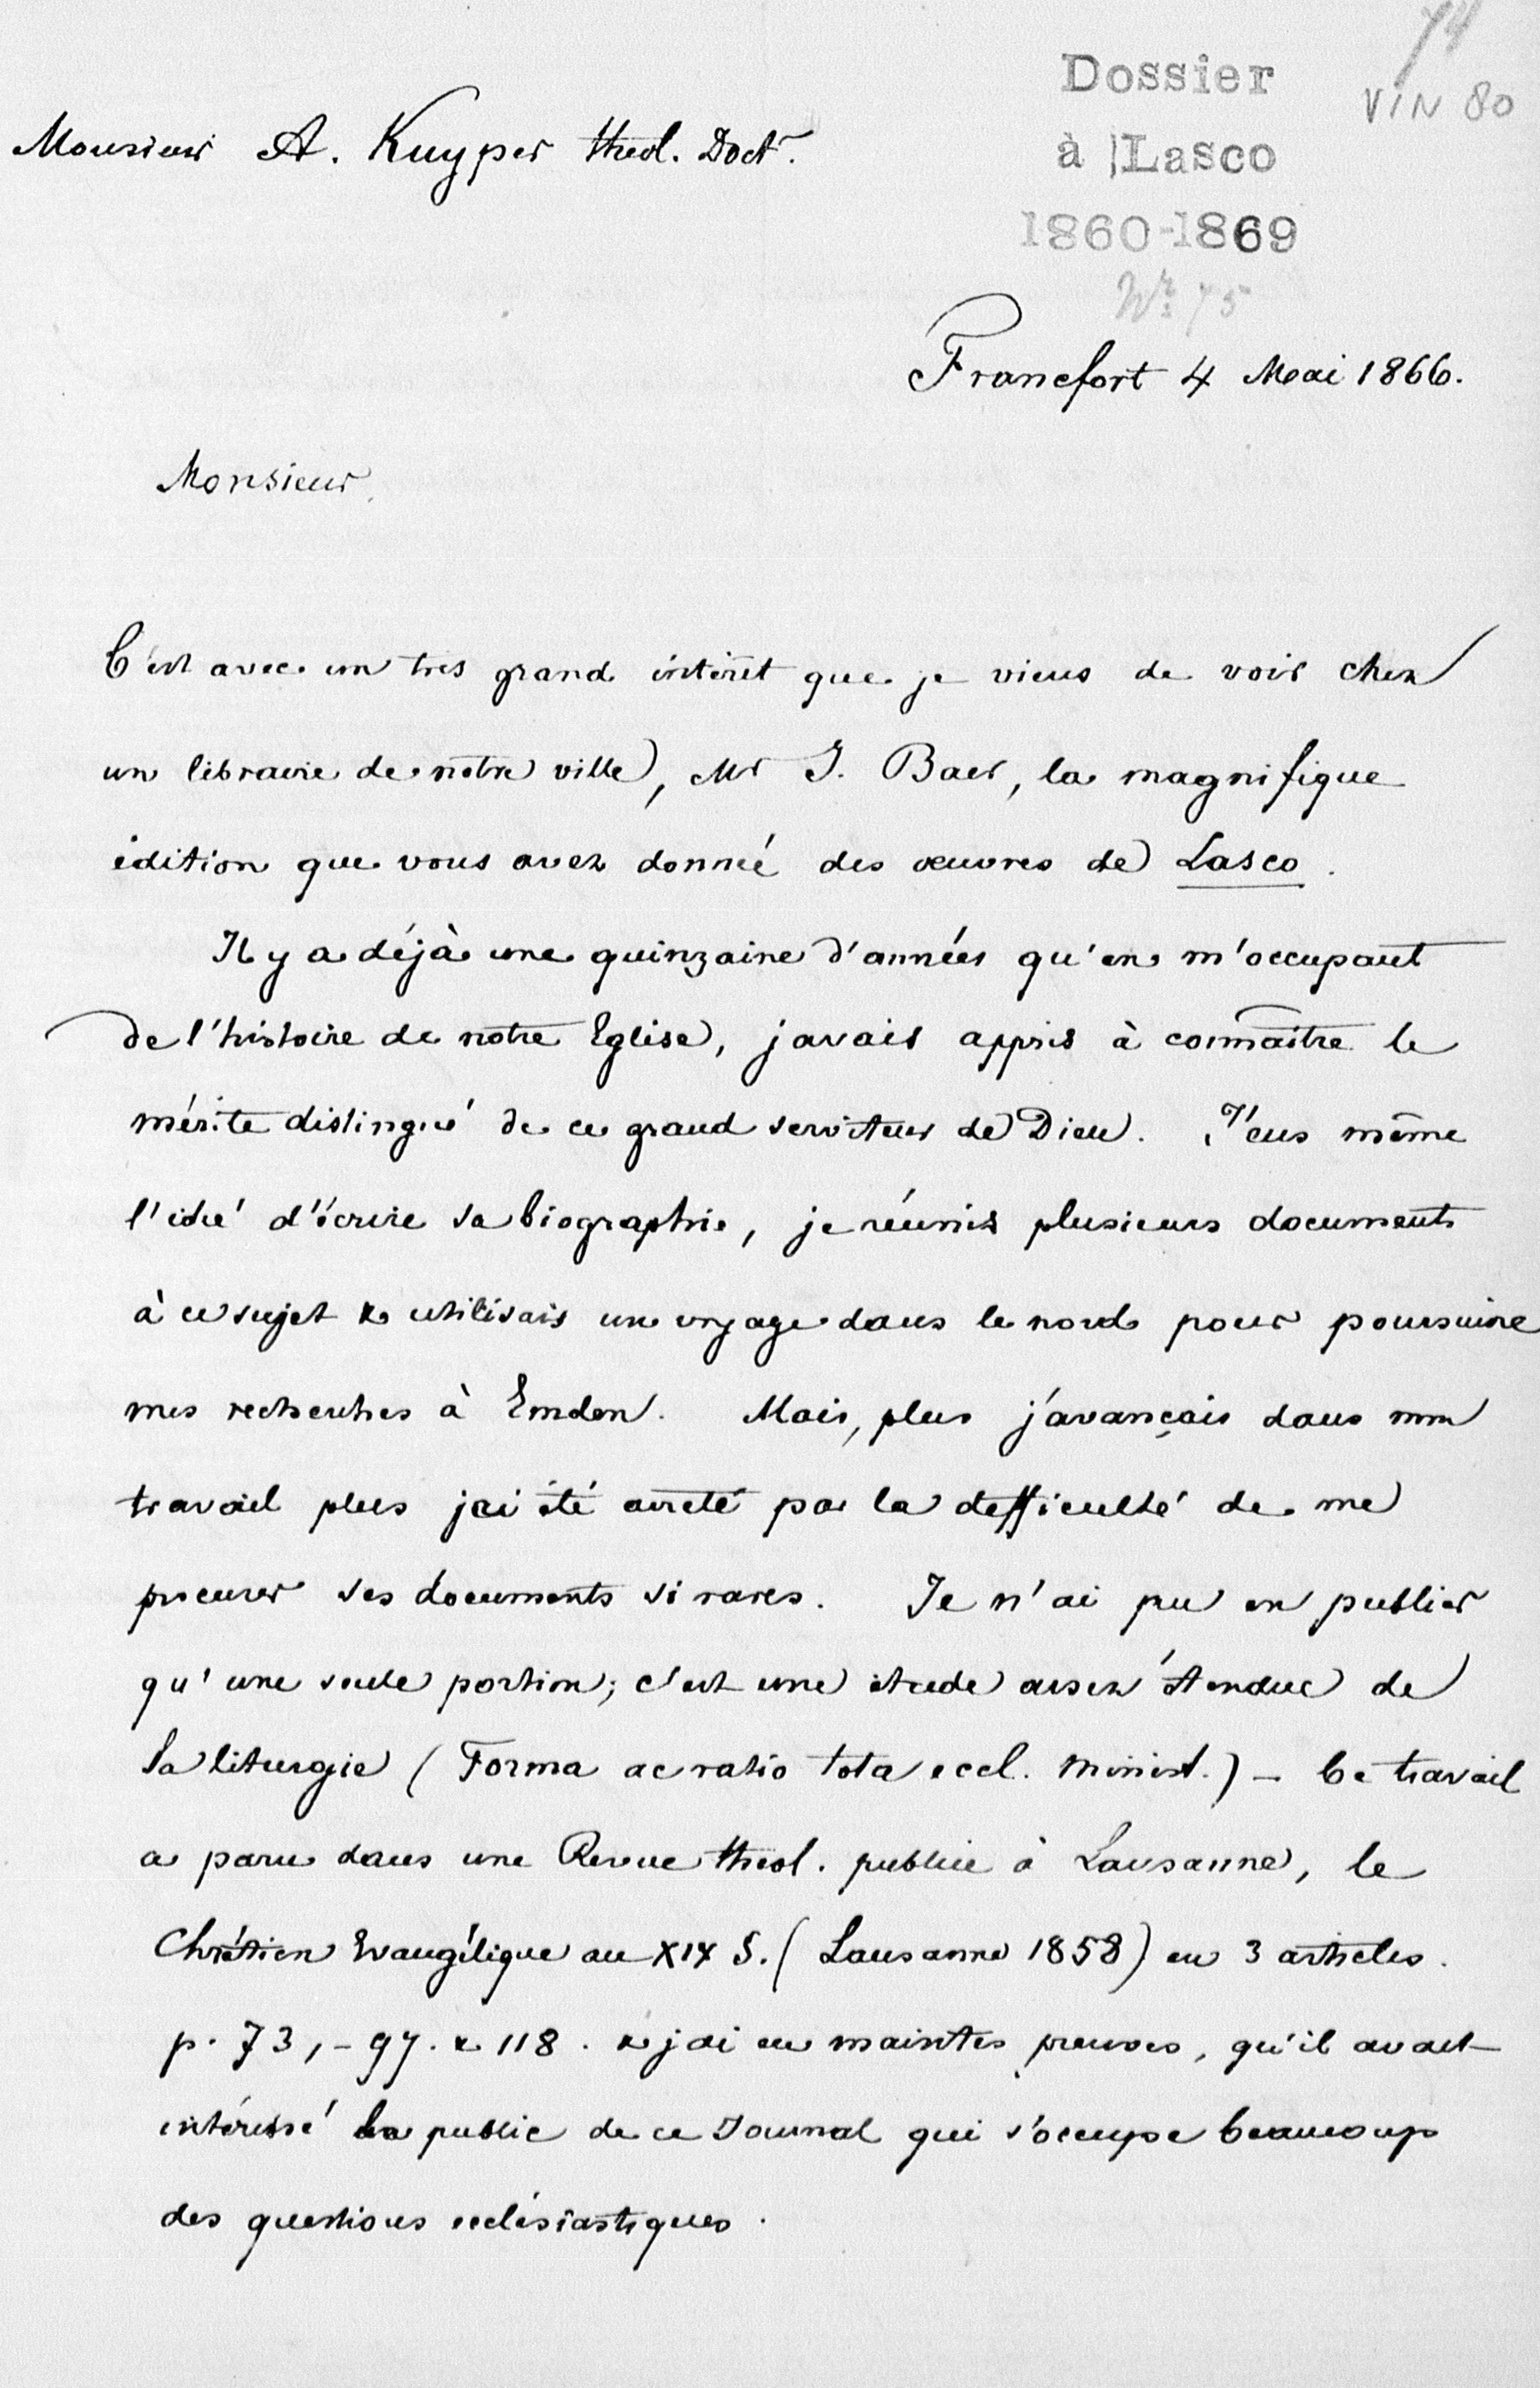 74
VIN 80
Dossier
à Lasco
1860-1869
Nr. 75
Monsieur A. Kuyper theol. Doctr.
Francfort 4 Mai 1866.
Monsieur.
C'est avec un très grand intérêt que je viens de voir chez
un libraire de notre ville, Mr J. Baer, la magnifique
édition que vous avez donné des œuvres de Lasco.
Il y a déjà une quinzaine d'années qu'en m'occupant
de l'histoire de notre Eglise, javais appris à connaître le
mérite distingué de ce grand serviteur de Dieu. J'eus même
l'idée d'écrire sa biographie, je réunis plusieurs documents
à ce sujet & utilisais un voyage dans le nord pour poursuivre
mes recherches à Emden. Mais, plus j'avançais dans mon
travail plus jai été arreté par la difficulté de me
procurer ses documents si rares. Je n'ai pu en publier
qu'une seule portion; c'est une étude assez étendue de
sa liturgie (Forma ac ratio tota eccl. minist.) - Ce travail
a paru dans une Revue theol. publiée à Lausanne, le
Chrétien Evangélique au XIX S. (Lausanne 1858) en 3 articles.
p. 73, - 97. & 118. & jai eu maintes preuves, qu'il avait
intéressé le public de ce Journal qui s'occupe beaucoup
des questions ecclésiastiques.